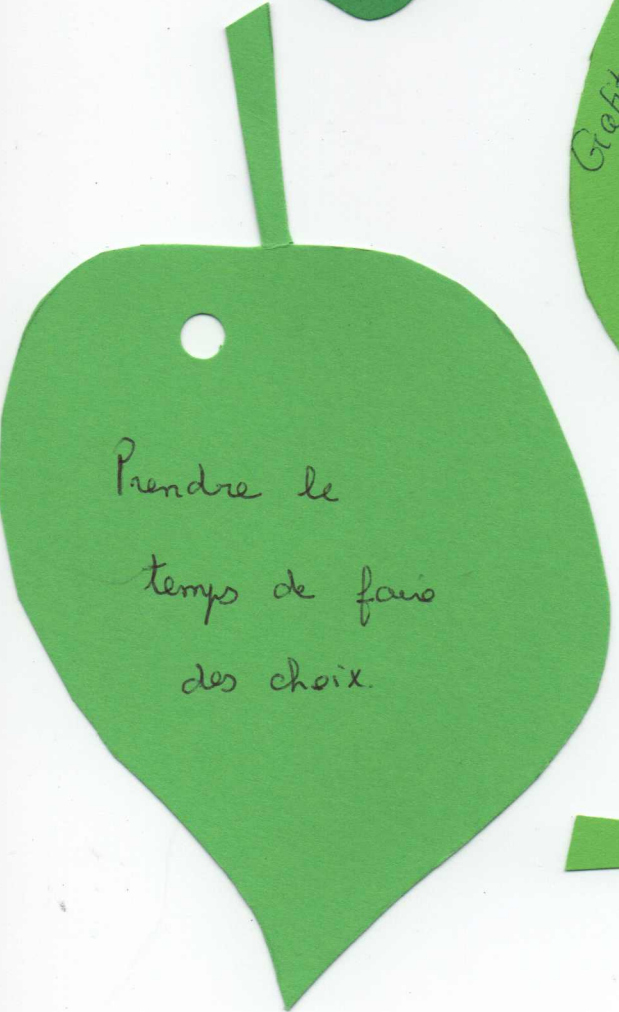 Prendre le
temps de faire
des choix.